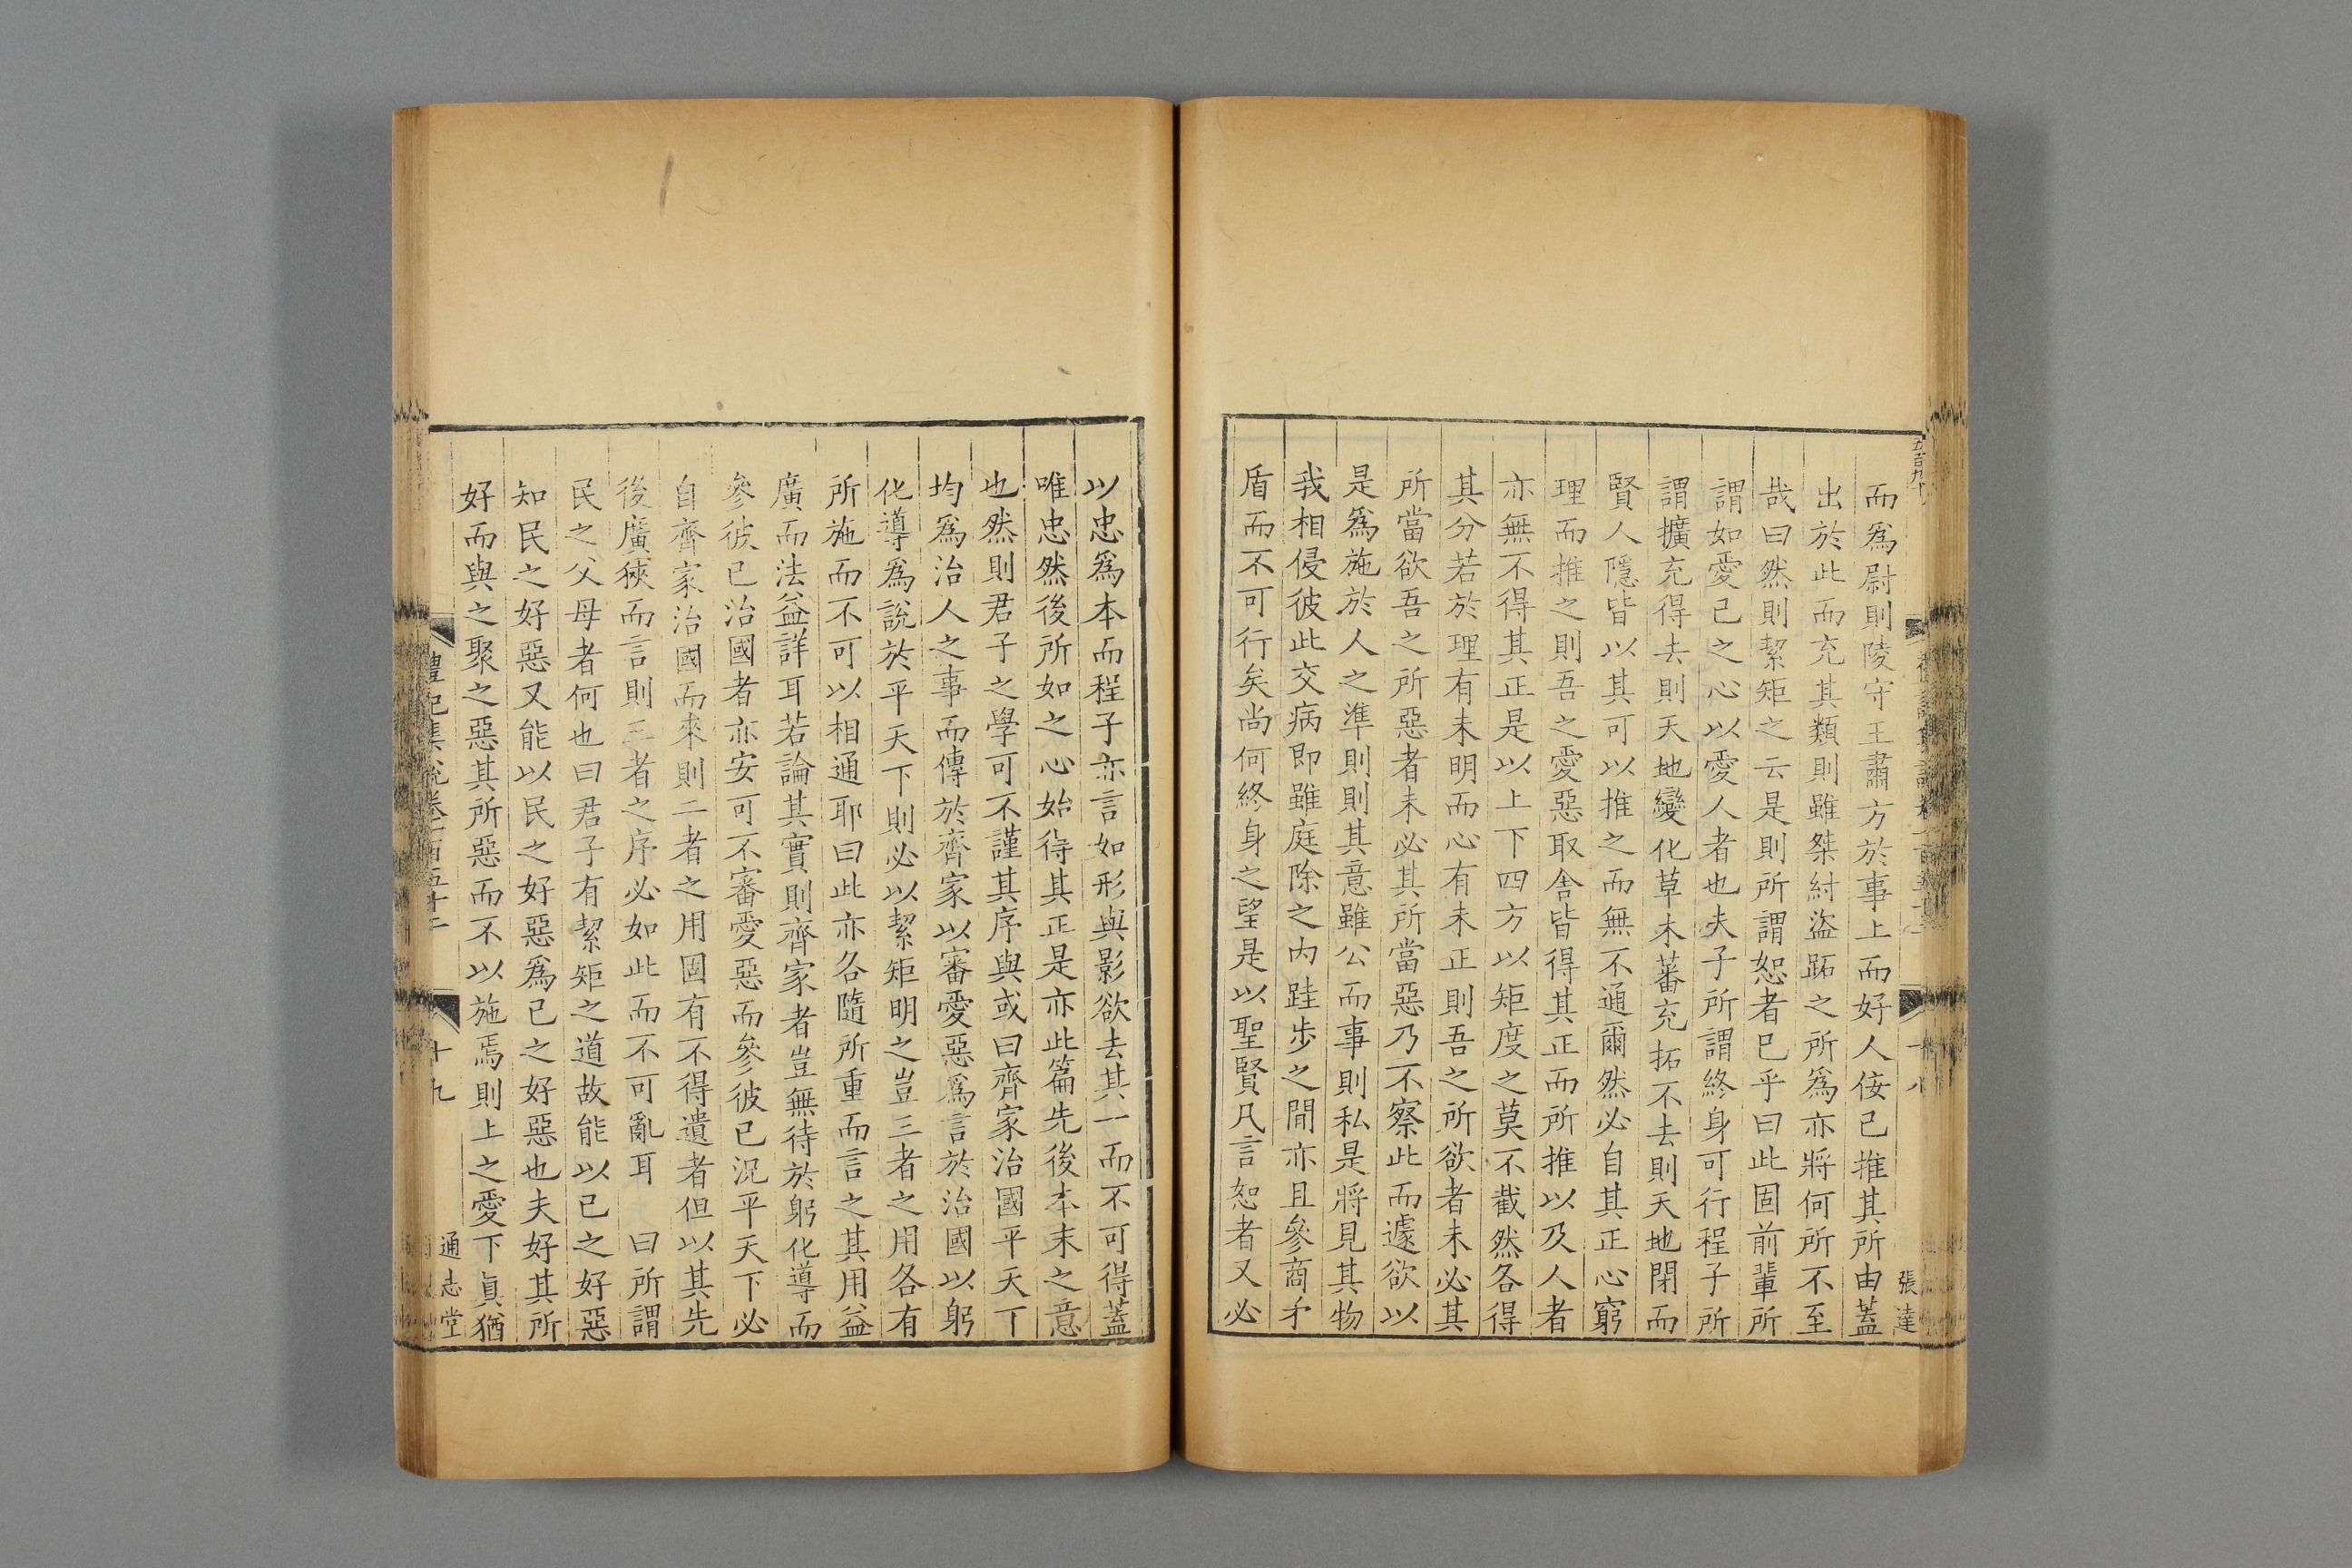 而爲尉則陵守王肅方於事上而好人佞己推其所由蓋
出於此而充其類則雖桀紂盜跖之所爲亦將何所不至
哉曰然則絜矩之云是則所謂恕者巳乎曰此固前輩所
謂如愛己之心以愛人者也夫子所謂終身可行程子所
謂擴充得去則天地變化草木蕃充拓不去則天地閉而
賢人隱皆以其可以推之而無不通爾然必自其正心窮
理而推之則吾之愛惡取舍皆得其正而所推以及人者
亦無不得其正是以上下四方以矩度之莫不截然各得
其分若於理有未明而心有未正則吾之所欲者未必其
所當欲吾之所惡者未必其所當惡乃不察此而遽欲以
是爲施於人之準則則其意雖公而事則私是將見其物
我相侵彼此交病即雖庭除之内跬步之間亦且參商矛
盾而不可行矣尚何終身之望是以聖賢凡言恕者又必
張達
以忠爲本而程子亦言如形與影欲去其一而不可得蓋
唯忠然後所如之心始得其正是亦此篇先後本末之意
也然則君子之學可不謹其序與或曰齊家治國平天下
均爲治人之事而傳於齊家以審愛惡爲言於治國以躬
化導爲說於平天下則必以絜矩明之豈三者之用各有
所施而不可以相通耶曰此亦各隨所重而言之其用益
廣而法益詳耳若論其實則齊家者豈無待於躬化導而
參彼己治國者亦安可不審愛惡而參彼己況平天下必
自齊家治國而來則二者之用固有不得遺者但以其先
後廣狹而言則三者之序必如此而不可亂耳 曰所謂
民之父母者何也曰君子有絜矩之道故能以己之好惡
知民之好惡又能以民之好惡爲己之好惡也夫好其所
好而與之聚之惡其所惡而不以施焉則上之愛下眞猶
禮記集說卷一百五十二
十九
通志堂